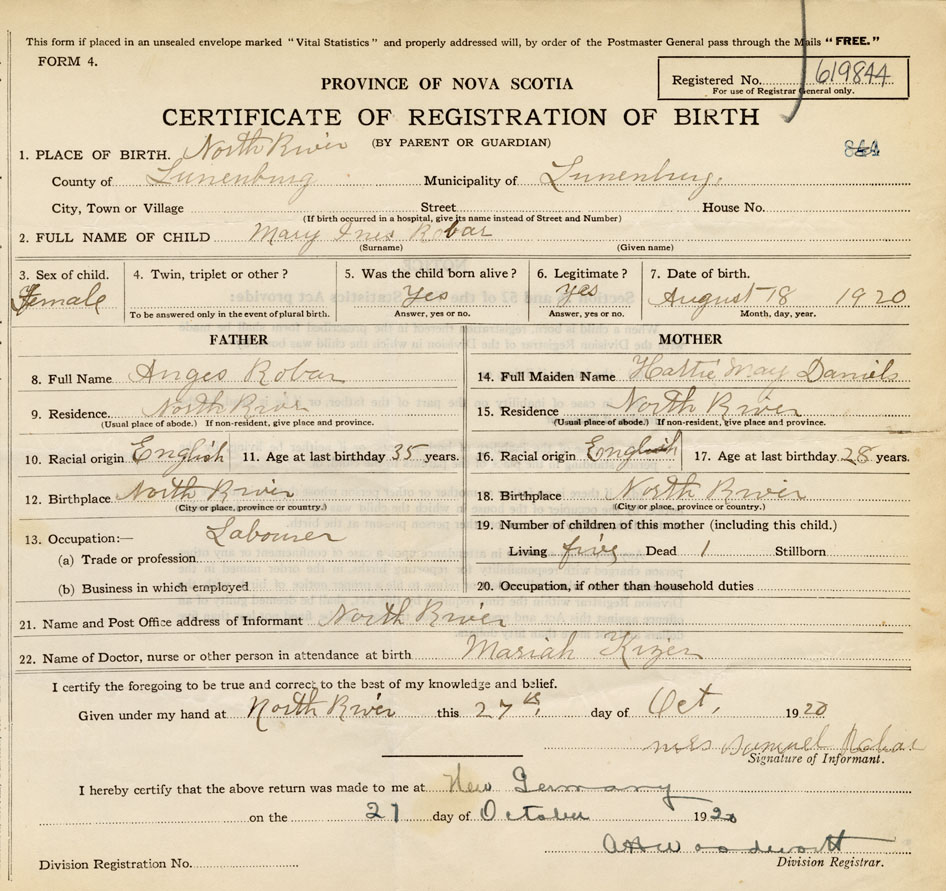 This form if placed in an unsealed envelope marked "Vital Statistics" and properly addressed will, by order of the Postmaster General pass through the Mails "FREE."
FORM 4.
Registered No. 619844
For use of Registrar General only.
PROVINCE OF NOVA SCOTIA
CERTIFICATE OF REGISTRATION OF BIRTH
(BY PARENT OR GUARDIAN)
1. PLACE OF BIRTH. North River
County of Lunenburg Municipality of Lunenburg.
City, Town or Village Street House No.
(If birth occurred in a hospital, give its name instead of Street and Number)
2. FULL NAME OF CHILD Mary Ines Robar
(Surname) (Given name)
3. Sex of child. 4. Twin, triplet or other? 5. Was the child born alive? 6. Legitimate? 7. Date of birth.
Female Yes yes August 18 1920
To be answered only in the event of plural birth. Answer, yes or no. Answer, yes or no. Month, day, year.
FATHER MOTHER
8. Full Name Anges Robar 14. Full Maiden Name Hattie May Daniels
9. Residence. North River 15. Residence North River
(Usual place of abode.) If non-resident, give place and province. (Usual place of abode.) If non-resident, give place and province.
10. Racial origin English 11. Age at last birthday 35 years. 16. Racial origin English 17. Age at last birthday 28 years.
12. Birthplace North River 18. Birthplace North River
(City or place, province or country.) (City or place, province or country.)
13. Occupation:— Labourer 19. Number of children of this mother (including this child.)
(a) Trade or profession Living five Dead 1 Stillborn
(b) Business in which employed 20. Occupation, if other than household duties
21. Name and Post Office address of Informant North River
22. Name of Doctor, nurse or other person in attendance at birth Mariah Kizer
I certify the foregoing to be true and correct to the best of my knowledge and belief.
Given under my hand at North River this 27th, day of Oct, 1920
Mrs Samuel Robar
Signature of Informant.
I hereby certify that the above return was made to me at New Germany
on the 27 day of October 1920
Division Registrar.
Division Registration No.